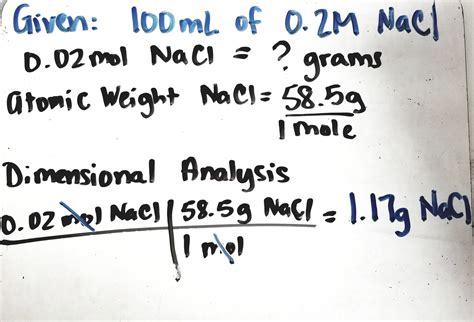 Given: 100mL of 0.2M NaCl
0.02mol NaCl = ? grams
atomic Weight NaCl = 58.5g
1 mole
Dimensional Analysis
0.02 mol NaCl | 58.5g NaCl = 1.17g NaCl
1 mol